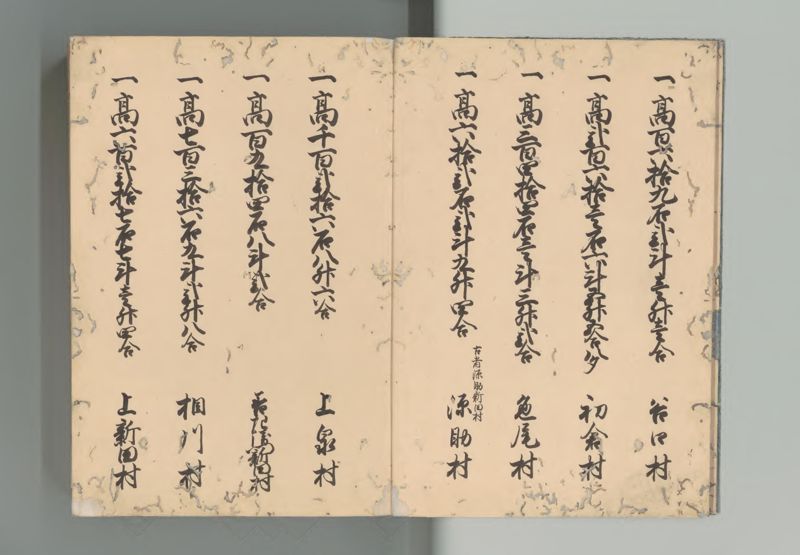 一高百六拾九石弐斗壱升壱合 谷口村
一高弐百六拾壱石六斗五升五合八夕 初倉村
一高三百四拾壱石三斗三升弐合 亀尾村
一高六拾弐石弐斗九升四合 古者源助新田村 源助村
一高千百弐拾六石八升六合 上泉村
一高百九拾四石八斗弐合 新田村
一高七百三拾六石九斗弐升八合 相川村
一高六百弐拾七石七斗壱升四合 上新田村